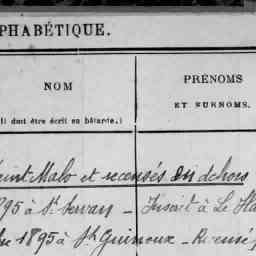 PHABÉTIQUE.
NOM
(Il doit être écrit en bâtarde.)
PRÉNOMS
ET SURNOMS.
Saint-Malo et recensés en dehors
1895 à St Servan – Inscrit à Le Ha
bre 1895 à St Guinoux – Recensé